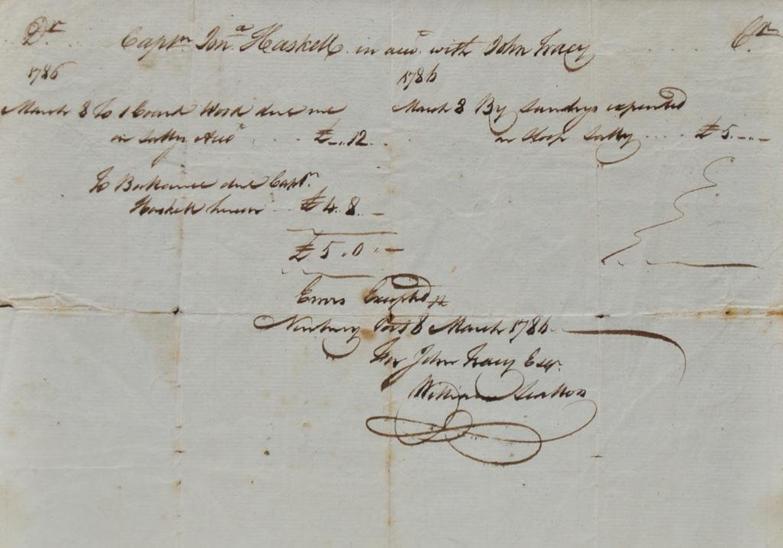 Dr Captn Jona Haskell in acct with John Tracy Cr
1786 1786
March 8 To 1 Coard Wood due me
in Sallys Acct £-.12.
To Ballance due Captn
Haskell £4.8.-
£5.0.-
March 8 By Sundrys expended
on Sloop Sally £5.-.-
Errors Excepted
Newbury Port 8 March 1786
for John Tracy Esqr
William